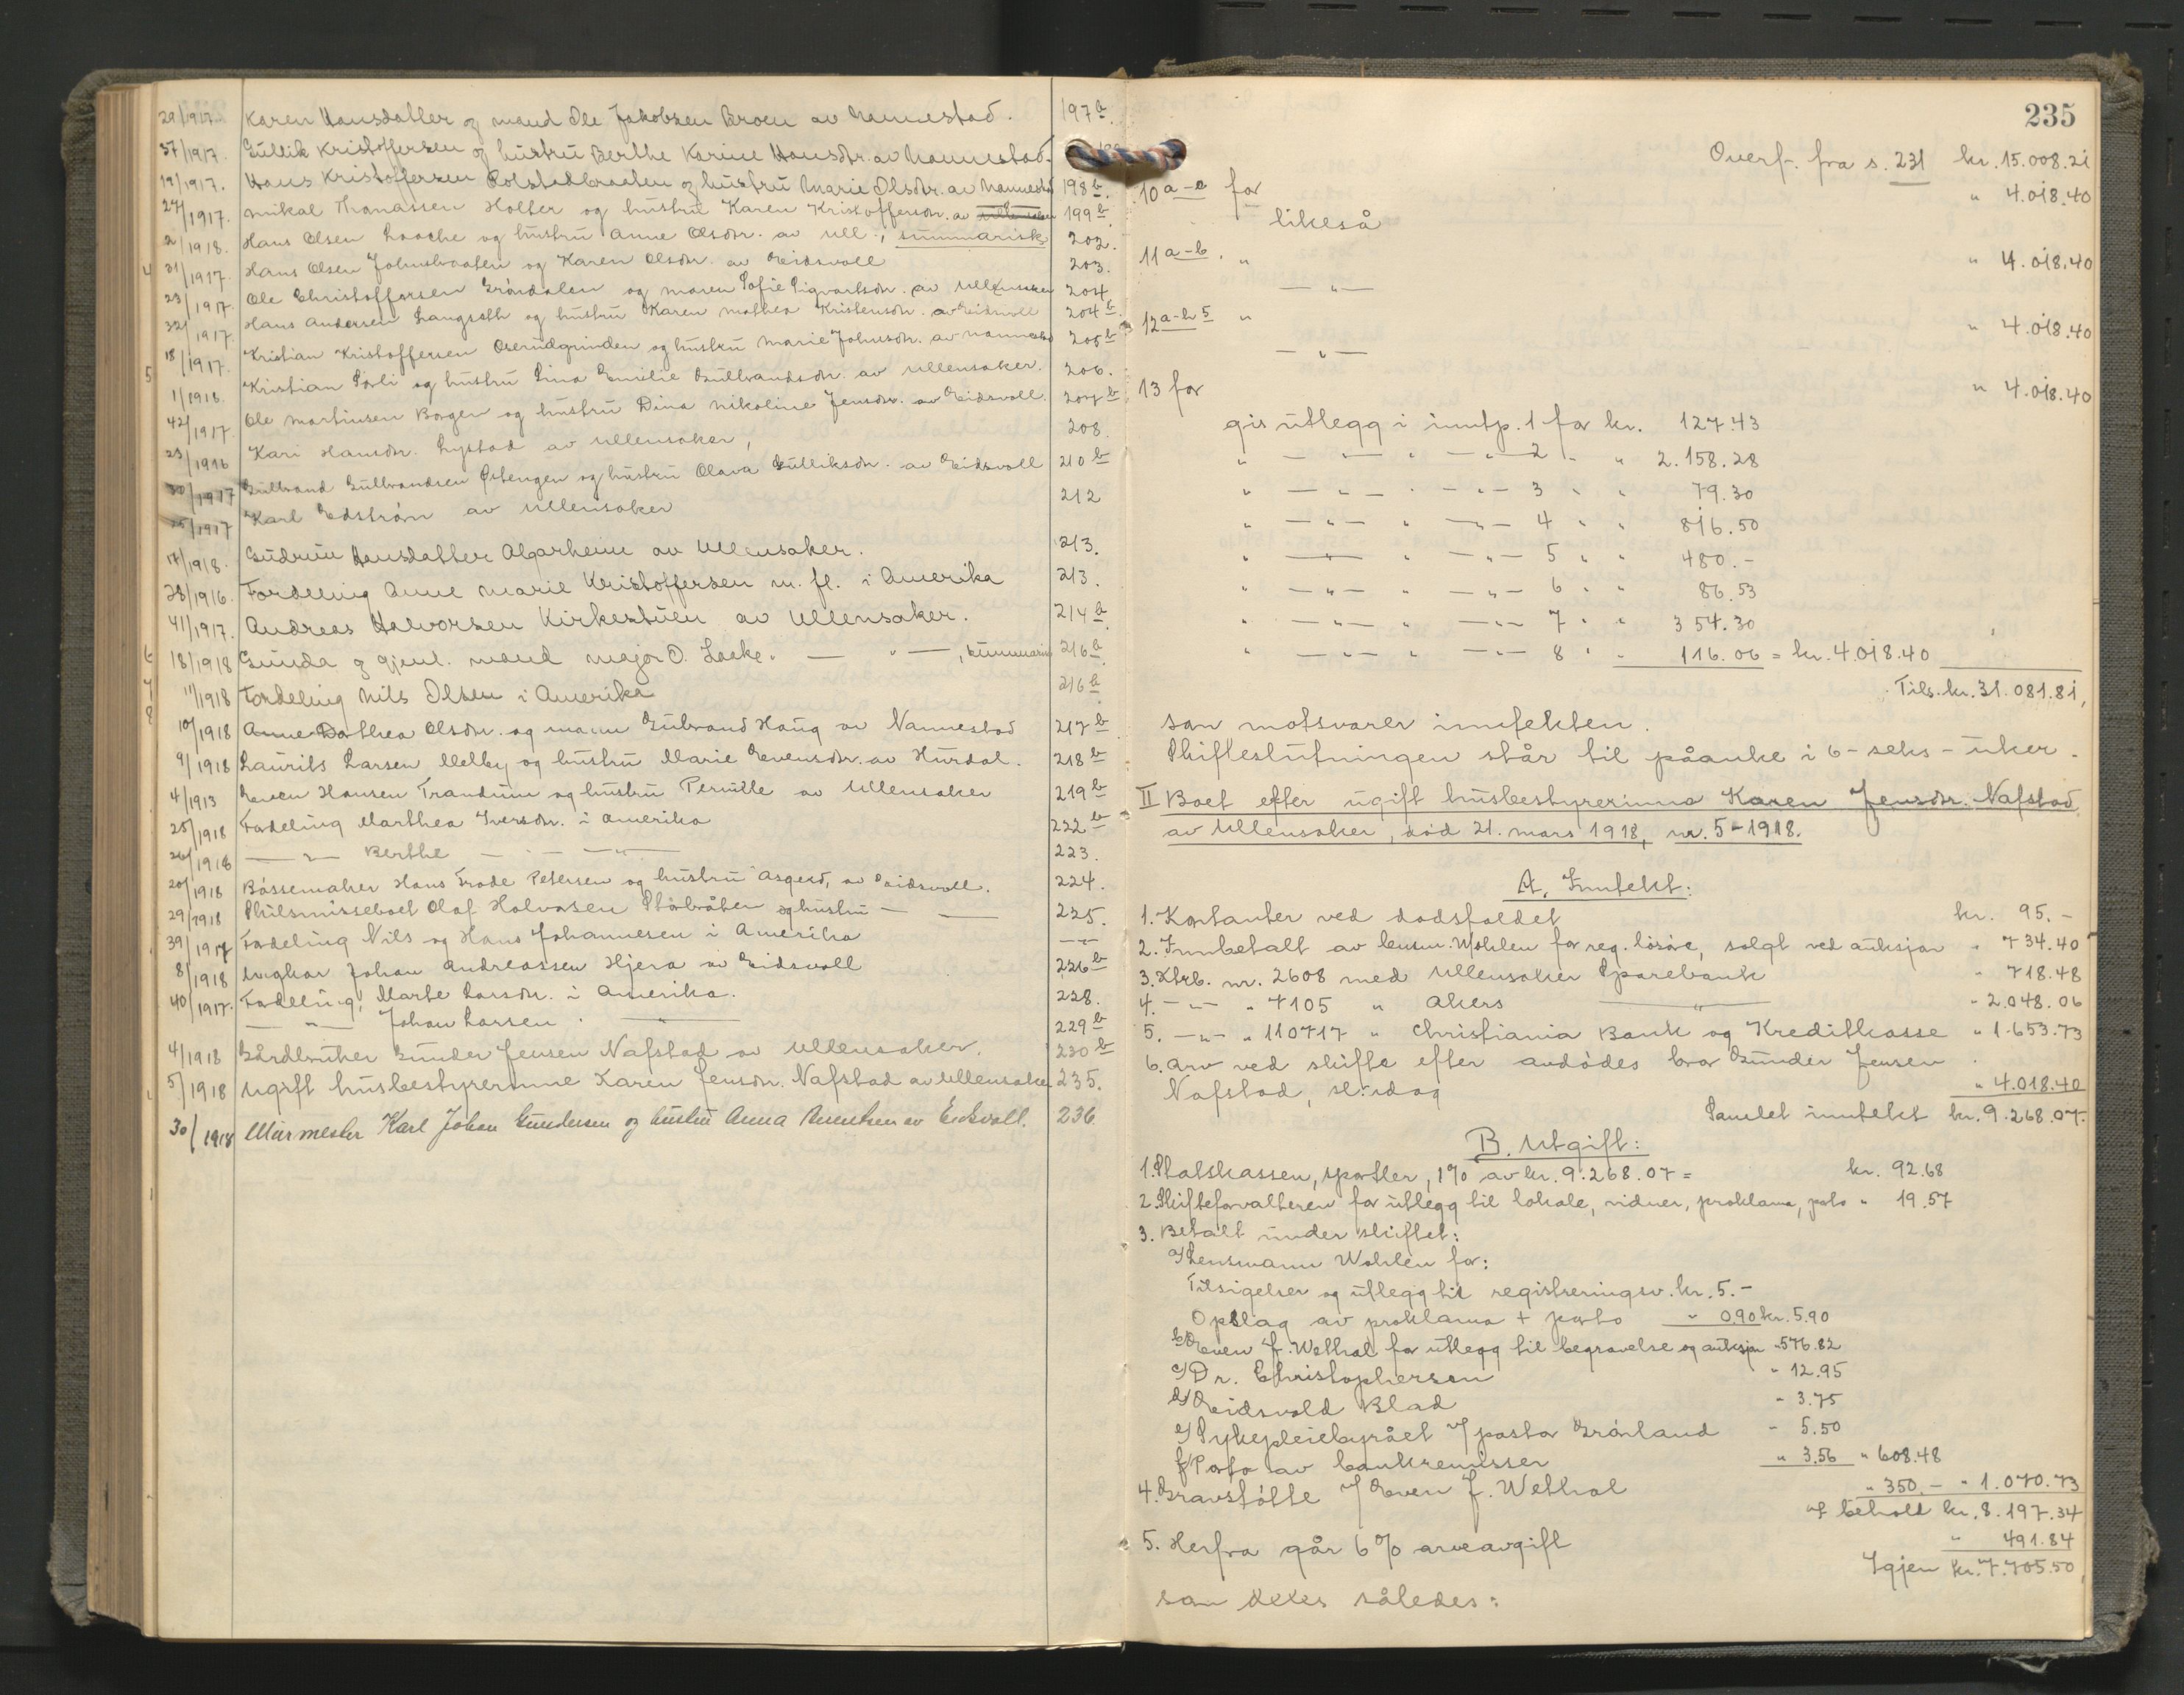 29/1917. Karen Hansdatter og mand Ole Jakobsen Broen av Nannestad. 197 b.
37/1917. Gullik Kristoffersen og hustru Berthe Karine Hansdtr. av Nannestad.
19/1917. Hans Kristoffersen Rolstadbraaten og hustru Marie Olsdtr. av Nannestad 198 b.
27/1917. Mikal Thomassen Holter og hustru Karen Kristoffersdr. av 199 b
2/1918. Hans Olsen Laache og hustru Anne Olsdtr. av Ull., summarisk 202.
4 31/1917. Hans Olsen Johnsbraaten og Karen Olsdtr. av Eidsvoll 203.
23/1917. Ole Christoffersen Gröndalen og Maren Sofie Sigvartsdr. av Ullensaker 204
32/1917. Hans Andersen Langseth og hustru Karen Mathea Kristensdr. av Eidsvoll 204 b.
18/1917. Kristian Kristoffersen Oserudgrinden og hustru Marie Johnsdtr. av Nannestad 205 b
5 1/1918. Kristian Sørli og hustru Lina Emilie Gulbrandsdr. av Ullensaker. 206.
42/1917. Ole Martinsen Borgen og hustru Dina Nikoline Jensdr. av Eidsvoll. 207 b
23/1916 Kari Hansdr. Lystad av Ullensaker, 208.
30/1917 Gulbrand Gulbrandsen Østengen og hustru Olava Gulliksdr. av Eidsvoll 210 b
25/1917 Karl Edström av Ullensaker 212
17/1918. Gudrun Hansdatter Algarheim av Ullensaker. 213.
28/1916. Fordeling Anne Marie Kristoffersen m. fl. i Amerika 213.
41/1917. Andreas Halvorsen Kirkestuen av Ullensaker. 214 b.
6 18/1918 Gunda og gjenl. mand major O. Laake. — " —, summarisk 216 a.
7 11/1918 Fordeling Nils Olsen i Amerika 216 b
8 10/1918 Anne Dathea Olsdtr. og mann Gulbrand Haug av Nannestad 217 b
9/1918 Laurits Larsen Melby og hustru Marie Evensdtr. av Hurdal. 218 b
4/1913 Even Hansen Trandum og hustru Pernille av Ullensaker 219 b
25/1918 Fordeling Marthea Iversdtr. i Amerika 222 b
26/1918 — " — Berthe — " — — " — 223.
20/1918 Bössemaker Hans Frode Petersen og hustru Asgerd, av Eidsvoll. 224.
29/1918 Skilsmisseboet Olaf Halvorsen Storbråten og hustru — — 225.
39/1917 Fordeling Nils og Hans Johannesen i Amerika — " —
8/1918 Ungkar Johan Andreassen Hjera av Eidsvoll 226 b
40/1917. Fordeling Marte Larsdr. i Amerika. 228.
— " — Johan Larsen. — " — 229 b
4/1918 Gårdbruker Gunder Jensen Nafstad av Ullensaker. 230 b
5/1918 Ugift husbestyrerinne Karen Jensdr. Nafstad av Ullensaker 235.
30/1918 Murmester Karl Johan Gundersen og hustru Anna Amundsen av Eidsvoll. 236
235
Overf. fra s. 231 kr. 15.008.21
10 a-e for " 4.018.40
likeså
11 a-b. " " 4.018.40
— " —
12 a-h 5 " " 4.018.40
— " —
13 for " 4.018.40
gis utlegg i inntp. 1 for kr. 127.43
" — " — " — " — 2 " " 2.158.28
" — " — " — " — 3 " " 79.30
" — " — " — " — 4 " " 816.50
" — " — " — " — 5 " " 480.-
" — " — " — " — 6 " " 86.53
" — " — " — " — 7 " " 354.30
" — " — " — " — 8 " " 116.06 = kr. 4.018.40
Tils. kr. 31.081.81,
som motsvarer inntekten.
Skifteslutningen står til påanke i 6 - seks - uker.
II Boet efter ugift husbestyrerinne Karen Jensdr. Nafstad
av Ullensaker, död 21. mars 1918, nr. 5-1918.
A. Inntekt:
1. Kontanter ved dødsfaldet kr. 95.-
2. Innbetalt av lensm. Wohlen for reg. lösöre, solgt ved auksjon " 734.40
3. Ktrb. nr. 2608 med Ullensaker Sparebank " 718.48
4. — " — " 7105 " Akers — " — " 2.048.06
5. — " — " 110717 " Christiania Bank og Kreditkasse " 1.653.73
6. Arv ved skifte efter avdödes bror Gunder Jensen
Nafstad, sl. idag " 4.018.40
Samlet inntekt kr. 9.268.07.
B. Utgift:
1. Statskassen, sportler, 1% av kr. 9.268.07 = kr. 92.68
2. Skifteforvalteren for utlegg til lokale, vidner, proklama, porto " 19.57
3. Betalt under skiftet:
a/ Lensmann Wohlen for:
Tilsigelser og utlegg til registreringsv. kr. 5.-
Opslag av proklama + porto " 0.90 kr. 5.90
b/ Even J. Wethal for utlegg til begravelse og auksjon " 576.82
c/ Dr. Christophersen " 12.95
d/ Eidsvold Blad " 3.75
e/ Sykepleiebyrået v/ pastor Grönland " 5.50
f/ Porto av bankremisser " 3.56 " 608.48
4. Gravstötte v/ Even J. Wethal " 350.- " 1.070.73
I behold kr. 8.197.34
5. Herfra går 6% arveavgift " 491.84
Igjen kr. 7.705.50,
som deles således: